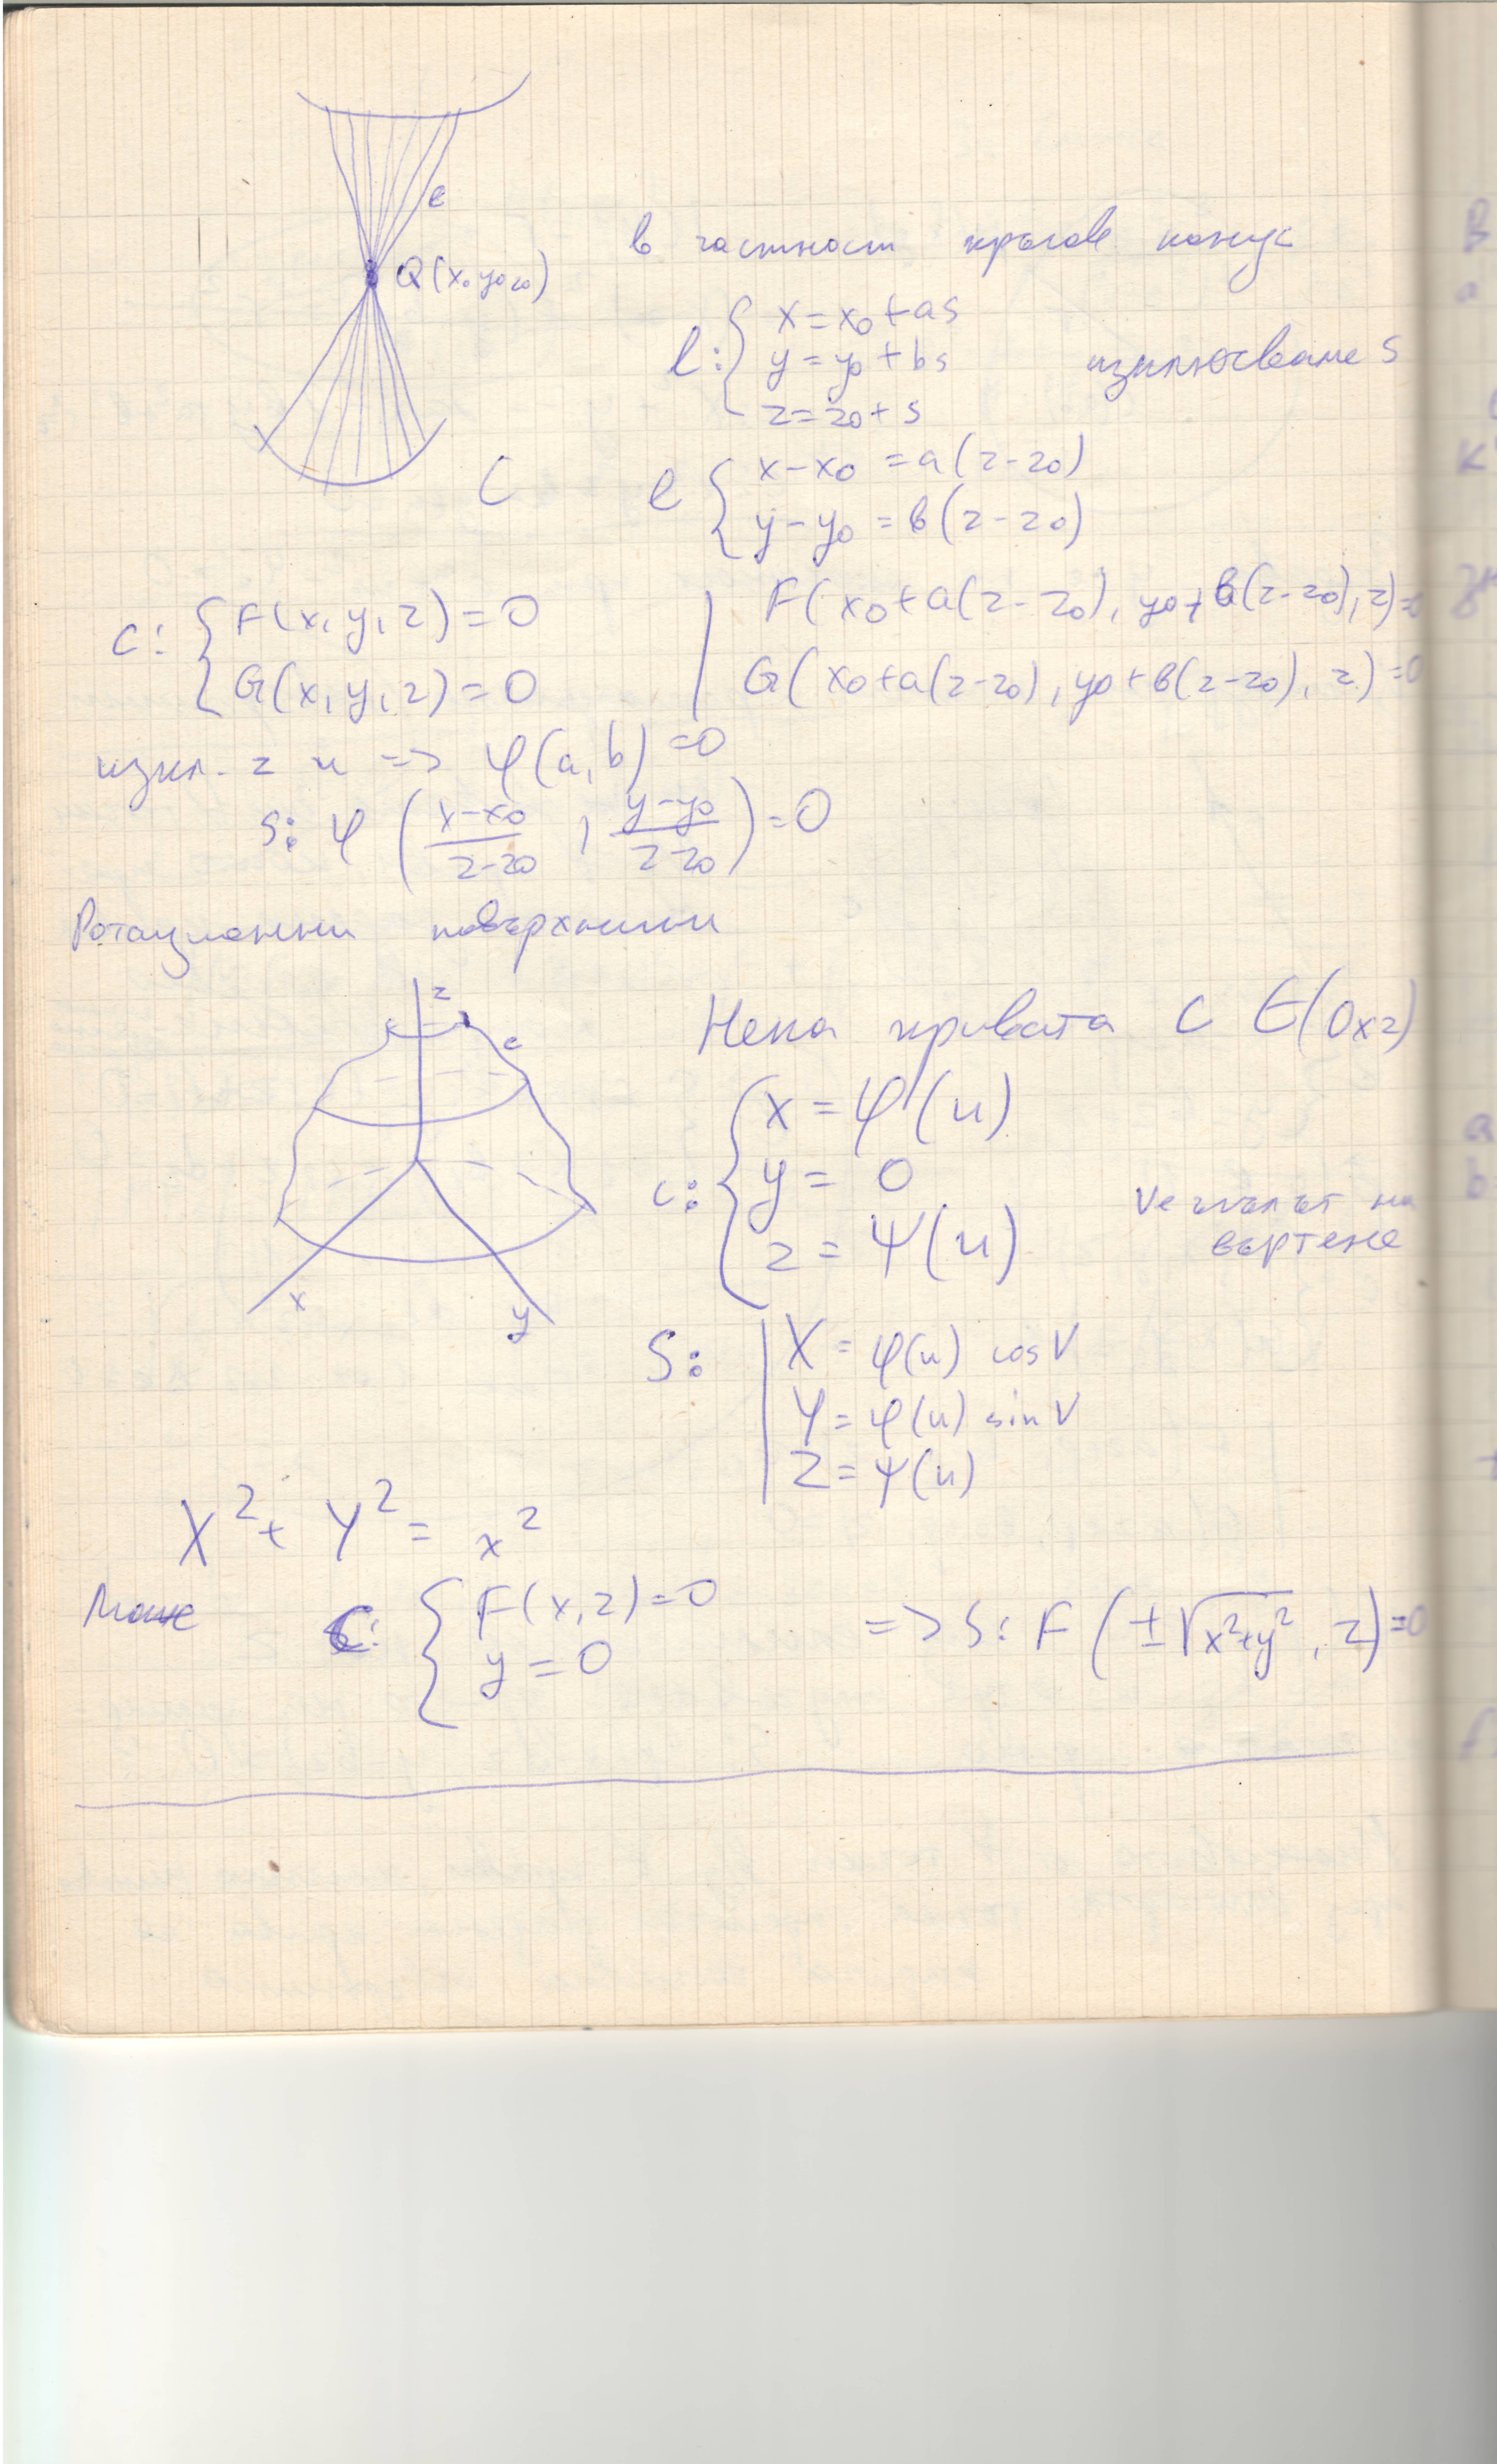 l
Q(x₀ y₀ z₀)
в частност кръгов конус
l: { x = x₀ + as
y = y₀ + bs
z = z₀ + s
изключваме s
C
l { x - x₀ = a(z - z₀)
y - y₀ = b(z - z₀)
c: { F(x, y, z) = 0
G(x, y, z) = 0
F(x₀ + a(z - z₀), y₀ + b(z - z₀), z) = 0
G(x₀ + a(z - z₀), y₀ + b(z - z₀), z) = 0
изкл. z и => φ(a, b) = 0
S: φ ( (x - x₀)/(z - z₀) , (y - y₀)/(z - z₀) ) = 0
Ротационни повърхнини
z
c
x
y
Нека кривата C ∈ (Oxz)
c: { x = φ(u)
y = 0
z = ψ(u)
V е ъгълът на
въртене
S: | X = φ(u) cos V
Y = φ(u) sin V
Z = ψ(u)
X² + Y² = x²
Може C: { F(x, z) = 0
y = 0
=> S: F ( ±√x²+y² , z) = 0